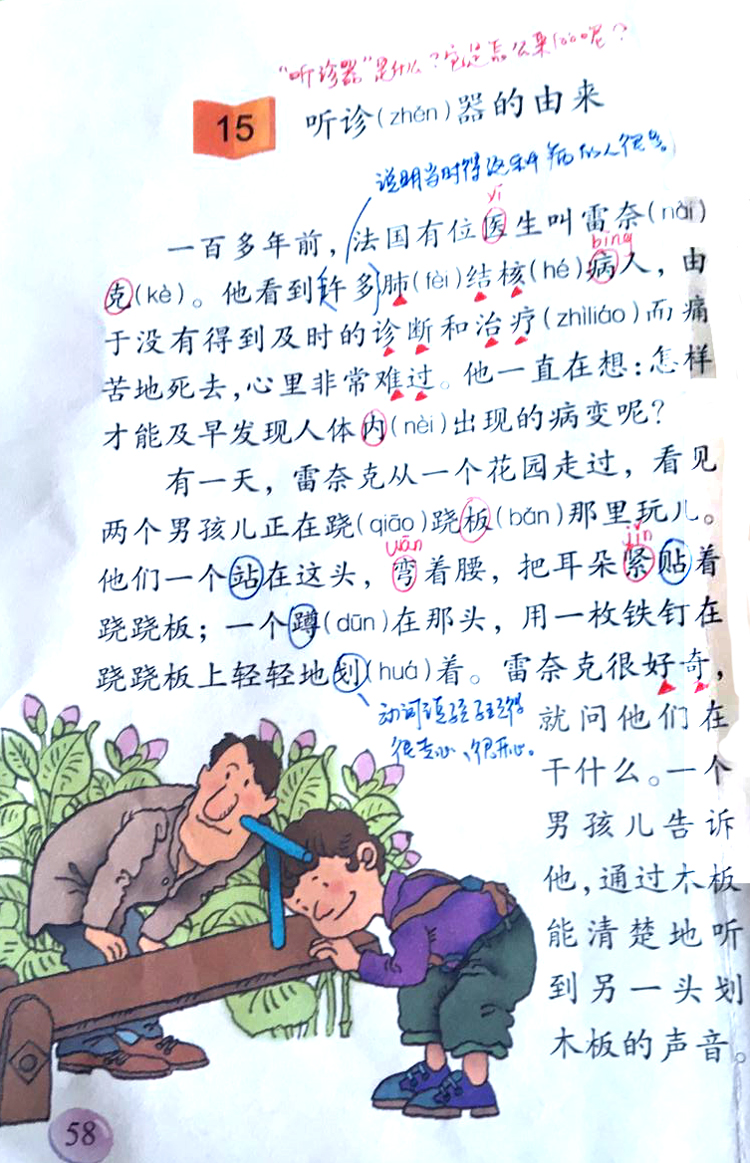 "听诊器"是什么？它是怎么来的呢？
15 听诊(zhěn)器的由来
说明当时得这种病的人很多。
yī
一百多年前，法国有位医生叫雷奈(nài)
bìng
克(kè)。他看到许多肺(fèi)结核(hé)病人，由
于没有得到及时的诊断和治疗(zhìliáo)而痛
苦地死去，心里非常难过。他一直在想：怎样
才能及早发现人体内(nèi)出现的病变呢？
有一天，雷奈克从一个花园走过，看见
两个男孩儿正在跷(qiāo)跷板(bǎn)那里玩儿。
wān jǐn
他们一个站在这头，弯着腰，把耳朵紧贴着
跷跷板；一个蹲(dūn)在那头，用一枚铁钉在
跷跷板上轻轻地划(huá)着。雷奈克很好奇，
动词
很专心、很开心。
就问他们在
干什么。一个
男孩儿告诉
他，通过木板
能清楚地听
到另一头划
木板的声音。
58